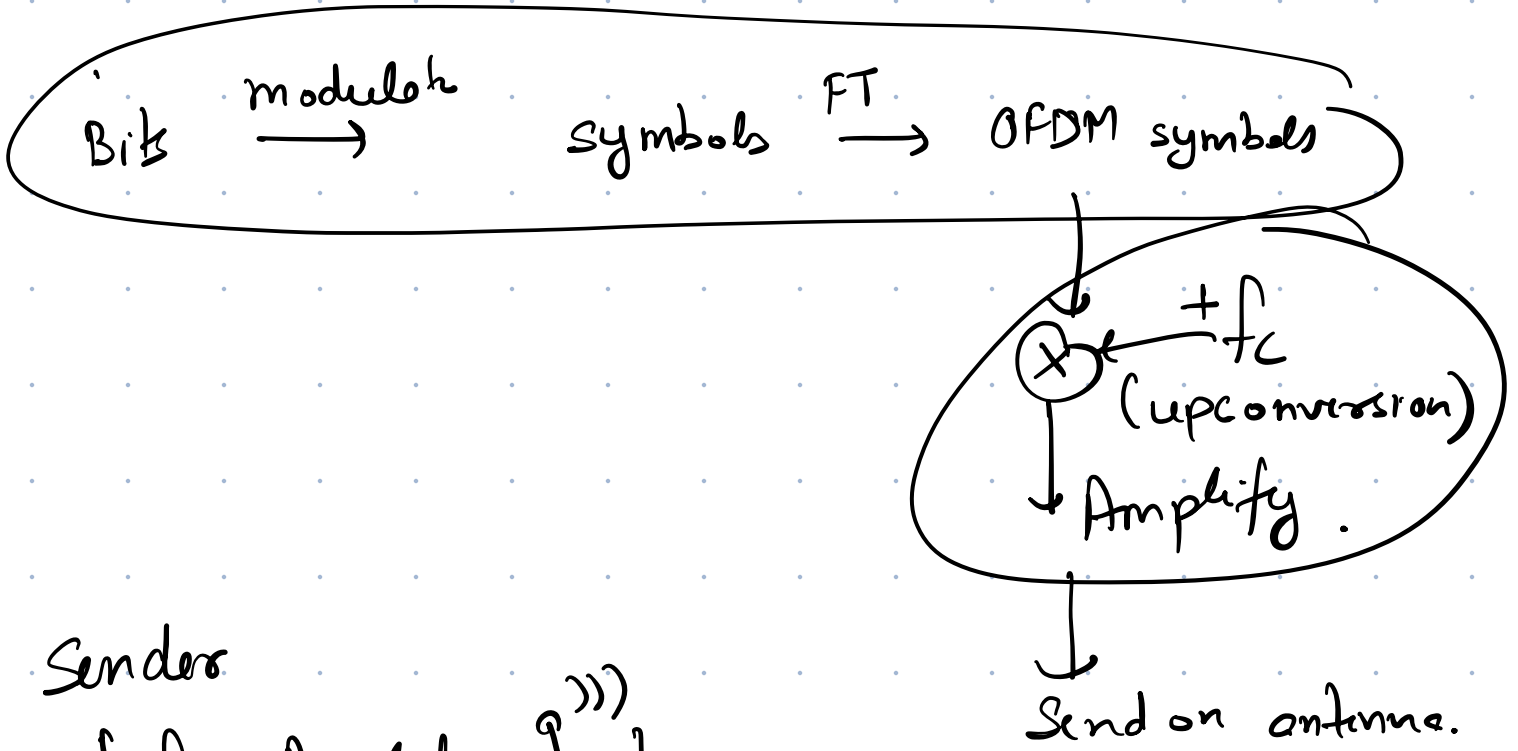 modulate FT
Bits → symbols → OFDM symbols
+ fc
X
(upconversion)
Amplify.
Sender
Send on antenna.